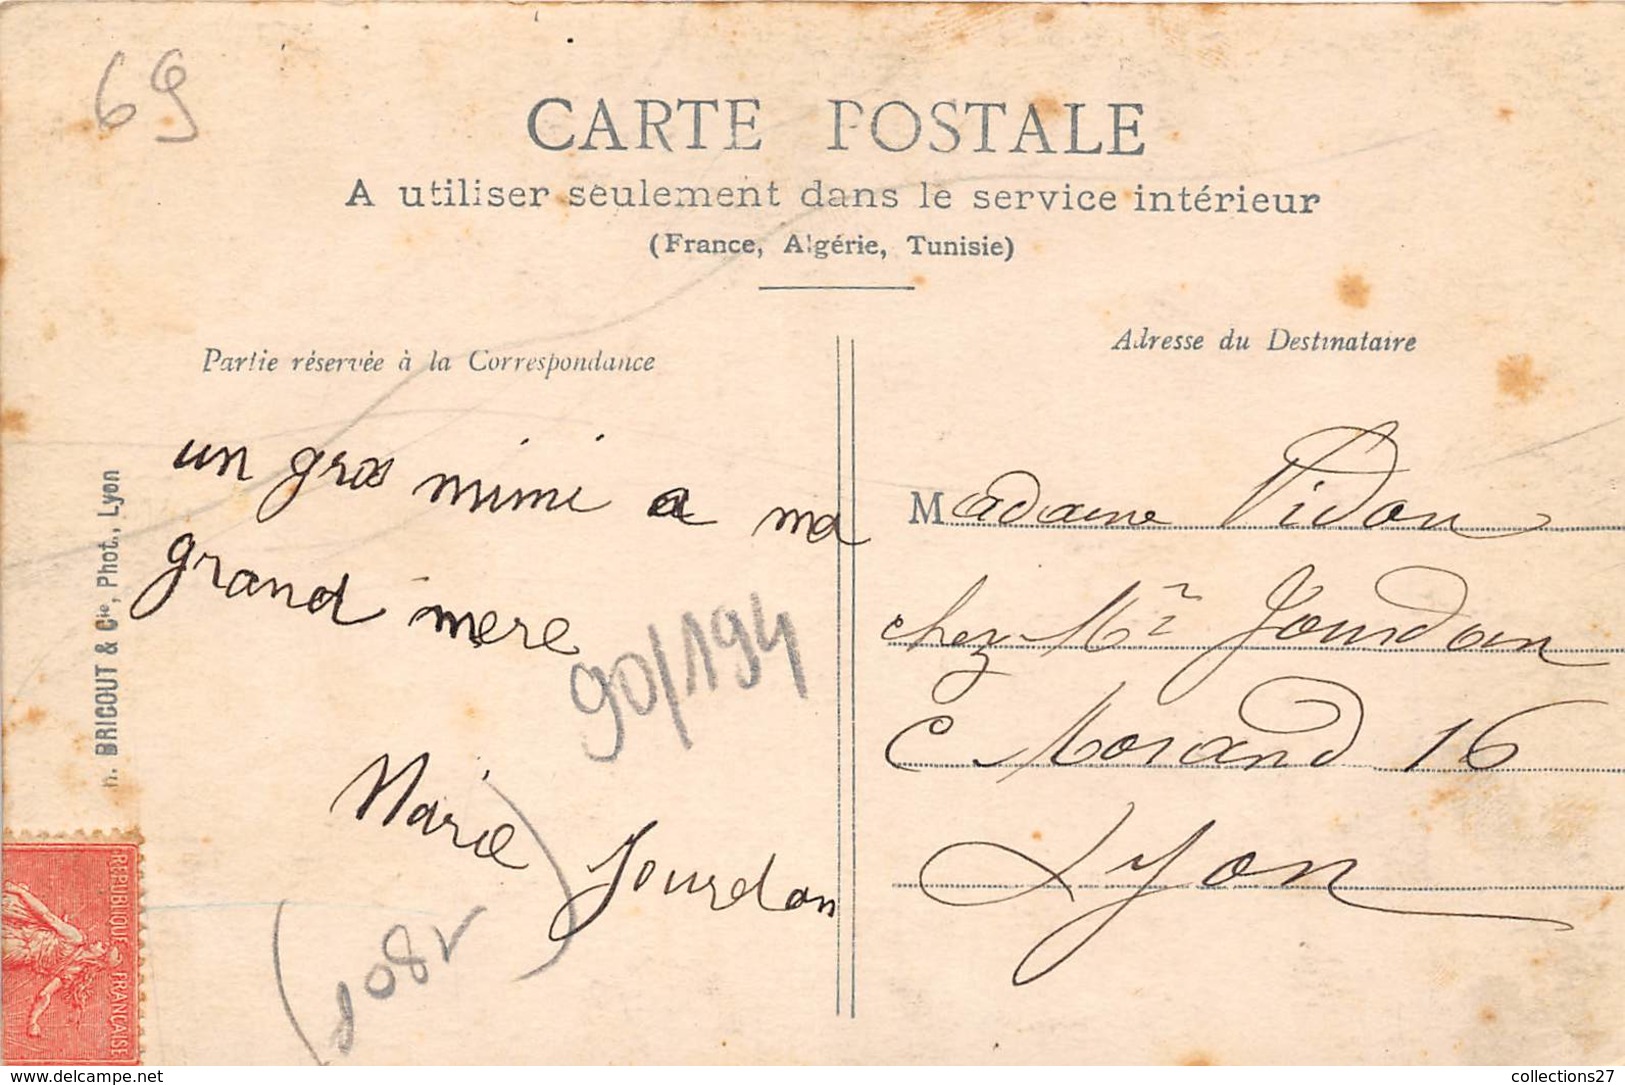 69
CARTE POSTALE
A utiliser seulement dans le service intérieur
(France, Algérie, Tunisie)
Partie réservée à la Correspondance
un gros mimi a ma
grand mere
90/194
Marie
Jourdan
BRICOUT & Cie, Phot., Lyon
REPUBLIQUE FRANÇAISE
Adresse du Destinataire
Madame Vidon
chez Mr Jourdan
C Morand 16
Lyon
collections27